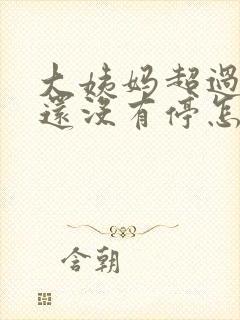 大姨妈超過
還沒有停怎
含朝